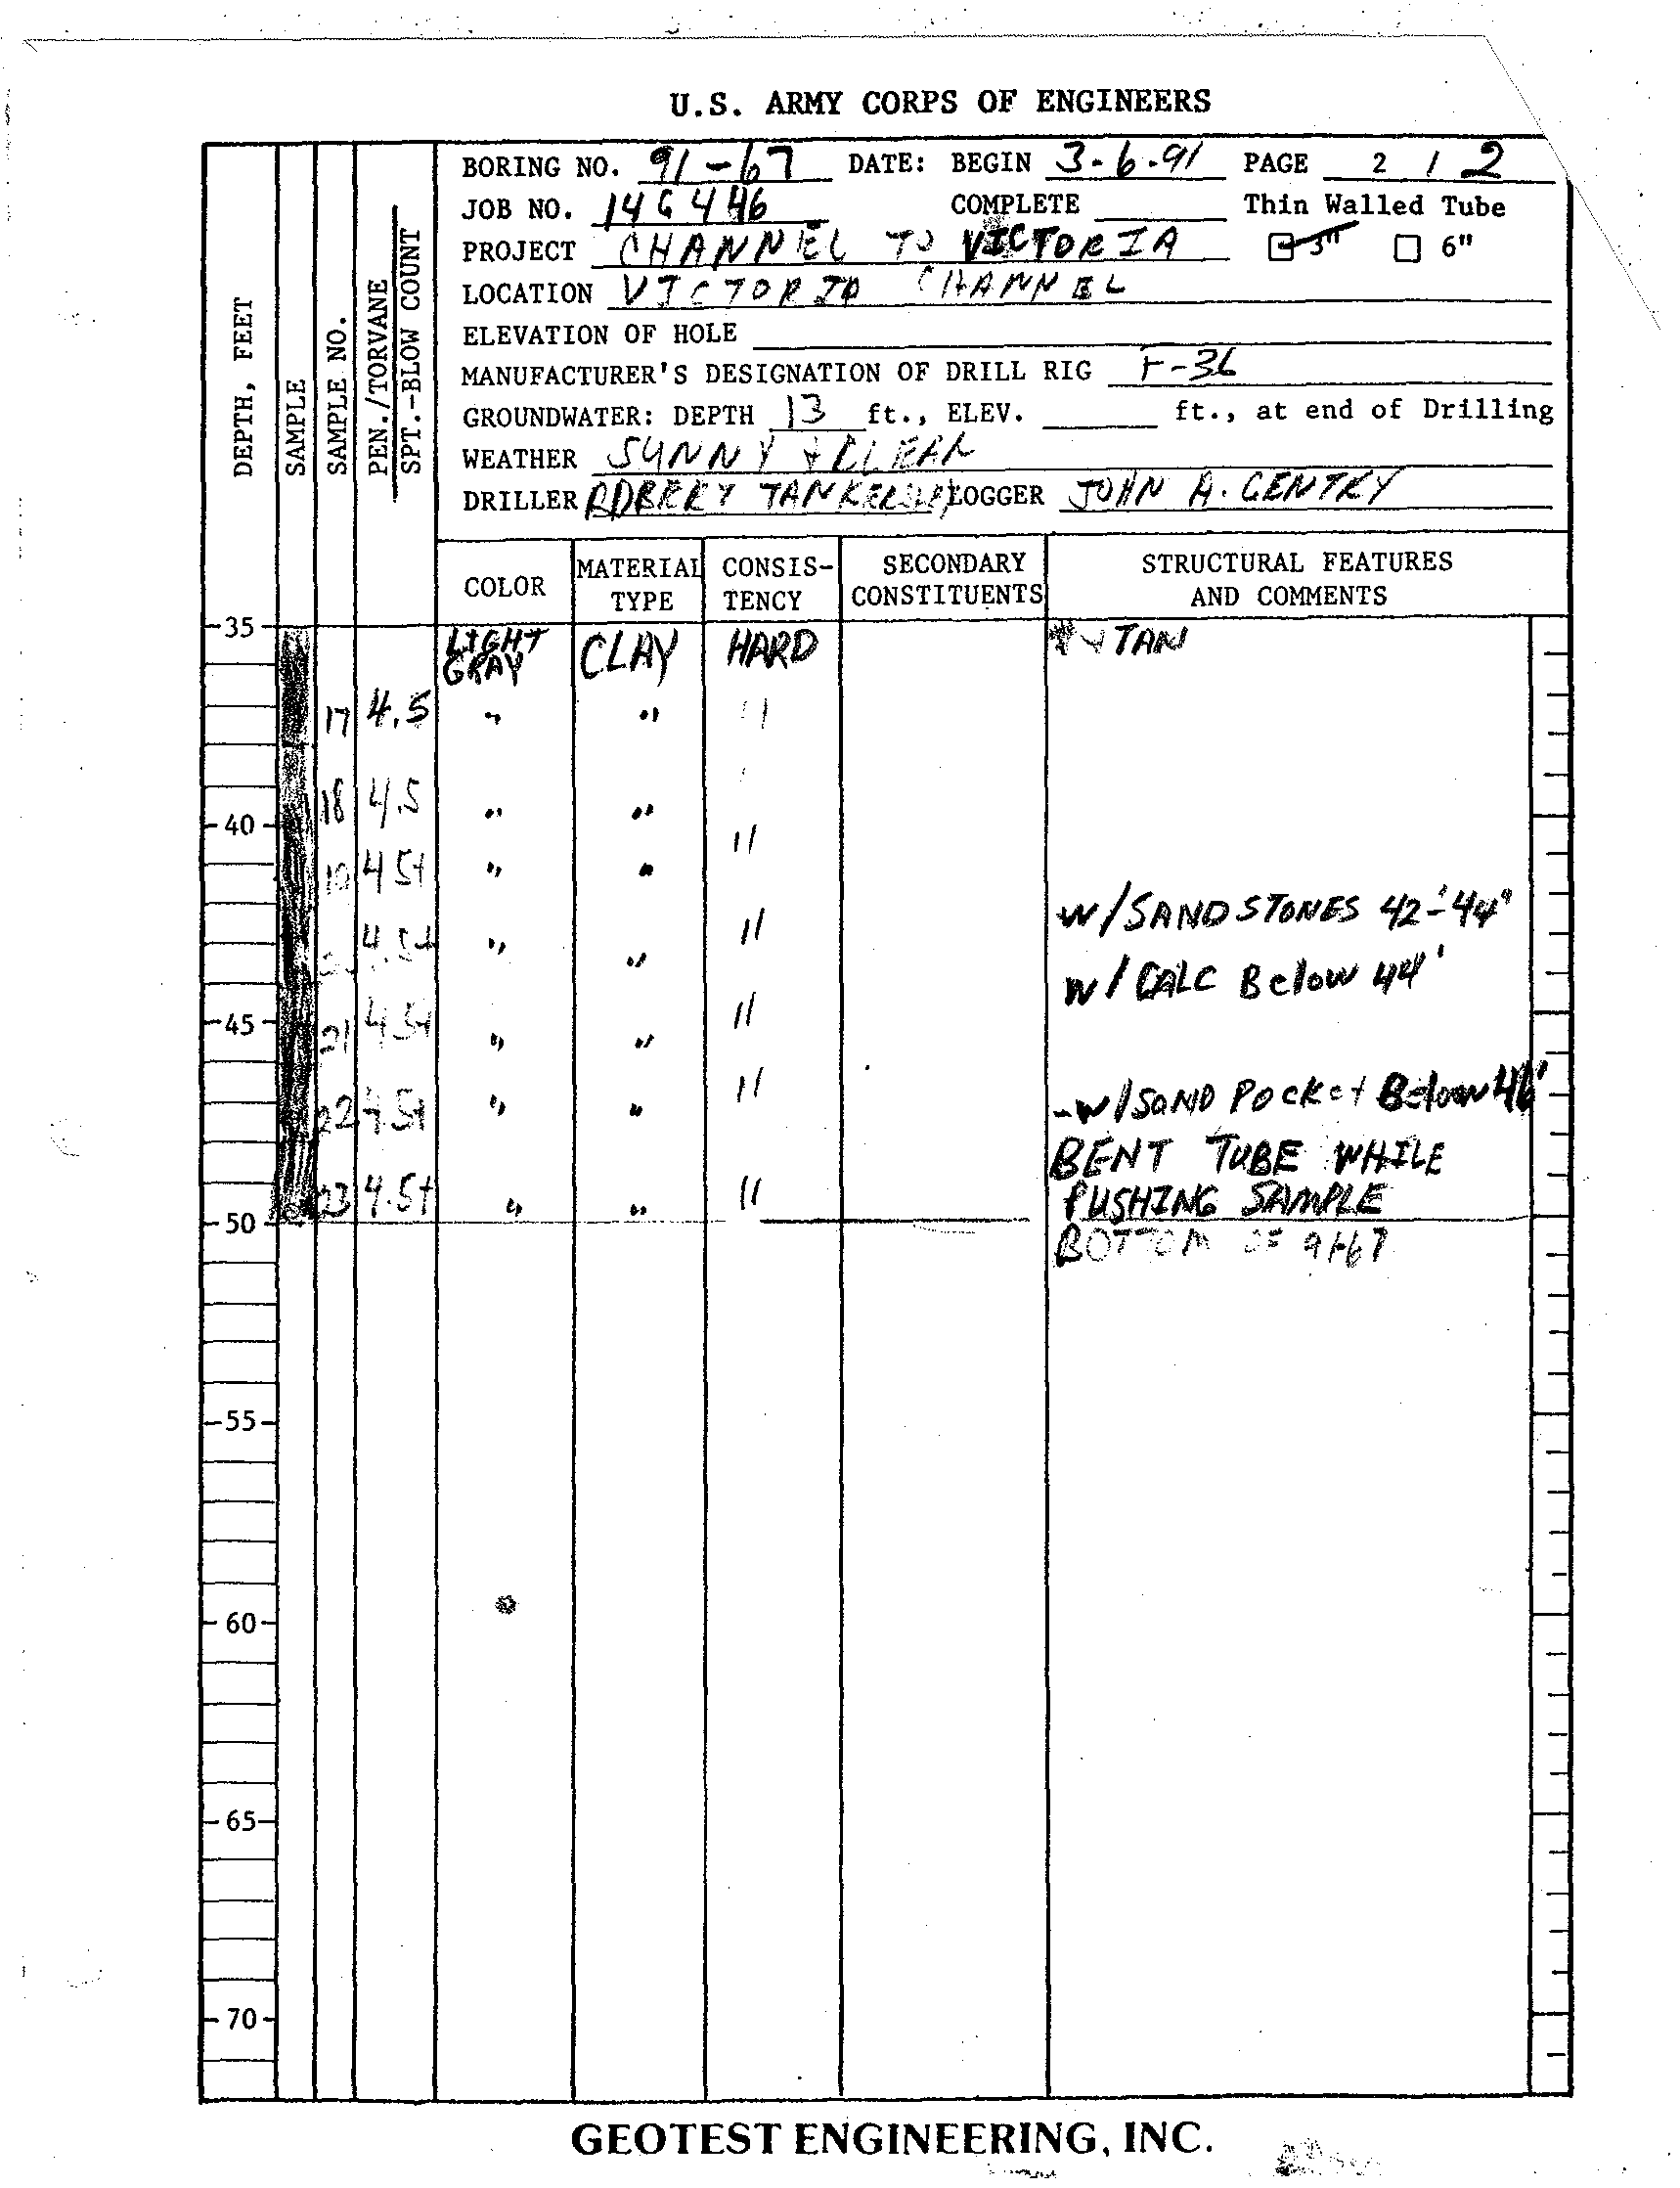 U.S. ARMY CORPS OF ENGINEERS
BORING NO. 91-67 DATE: BEGIN 3-6-91 PAGE 2 / 2
JOB NO. 14G446 COMPLETE Thin Walled Tube
PROJECT CHANNEL TO VICTORIA 3" 6"
LOCATION VICTORIA CHANNEL
ELEVATION OF HOLE
MANUFACTURER'S DESIGNATION OF DRILL RIG F-36
GROUNDWATER: DEPTH 13 ft., ELEV. ft., at end of Drilling
WEATHER SUNNY + CLEAR
DRILLER LOGGER JOHN A. GENTRY
DEPTH, FEET
SAMPLE
SAMPLE NO.
PEN./TORVANE
SPT.-BLOW COUNT
COLOR MATERIAL TYPE CONSIS-TENCY SECONDARY CONSTITUENTS STRUCTURAL FEATURES AND COMMENTS
35 LIGHT GRAY CLAY HARD TAN
17 4.5 " " "
18 4.5 " "
40 "
4.5+ " "
W/SANDSTONES 42'-44'
4.5+ " " "
W/ CALC Below 44'
45 21 4.5+ " " "
22 4.5+ " " " -W/SAND POCKET Below 46'
BENT TUBE WHILE
23 4.5+ " " " PUSHING SAMPLE
50 BOTTOM OF 91-67
55
60
65
70
GEOTEST ENGINEERING, INC.